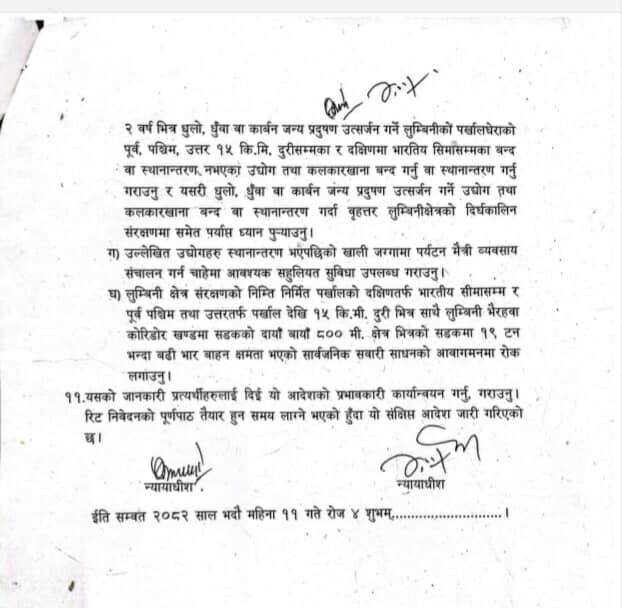 २ वर्ष भित्र धुलो, धुँवा वा कार्बन जन्य प्रदुषण उत्सर्जन गर्ने लुम्बिनीकों पर्खालघेराको
पूर्व, पश्चिम, उत्तर १५ कि.मि, दुरीसम्मका र दक्षिणमा भारतिय सिमासम्मका बन्द
वा स्थानान्तरण नभएका उद्योग तथा कलकारखाना बन्द गर्नु वा स्थानान्तरण गर्नु
गराउनु र यसरी धुलो, धुँवा वा कार्बन जन्य प्रदुषण उत्सर्जन गर्ने उद्योग तथा
कलकारखाना बन्द वा स्थानान्तरण गर्दा बृहत्तर लुम्बिनीक्षेत्रको दिर्घकालिन
संरक्षणमा समेत पर्याप्त ध्यान पुऱ्याउनु।
ग) उल्लेखित उद्योगहरु स्थानान्तरण भएपछिको खाली जग्गामा पर्यटन मैत्री व्यवसाय
संचालन गर्न चाहेमा आवश्यक सहुलियत सुविधा उपलब्ध गराउनु।
घ) लुम्बिनी क्षेत्र संरक्षणको निम्ति निर्मित पर्खालको दक्षिणतर्फ भारतीय सीमासम्म र
पूर्व पश्चिम तथा उत्तरतर्फ पर्खाल देखि १५ कि.मी. दुरी भित्र साथै लुम्बिनी भैरहवा
कोरिडोर खण्डमा सडकको दायाँ बायाँ ८०० मी. क्षेत्र भित्रको सडकमा १९ टन
भन्दा बढी भार बाहन क्षमता भएको सार्वजनिक सवारी साधनको आवागमनमा रोक
लगाउनु।
११.यसको जानकारी प्रत्यर्थीहरुलाई दिई यो आदेशको प्रभावकारी कार्यान्वयन गर्नु, गराउनु।
रिट निवेदनको पूर्णपाठ तैयार हुन समय लाग्ने भएको हुँदा यो संक्षिप्त आदेश जारी गरिएको
छ।
न्यायाधीश
न्यायाधीश
ईति सम्वत २०८२ साल भदौ महिना ११ गते रोज ४ शुभम्.............................।